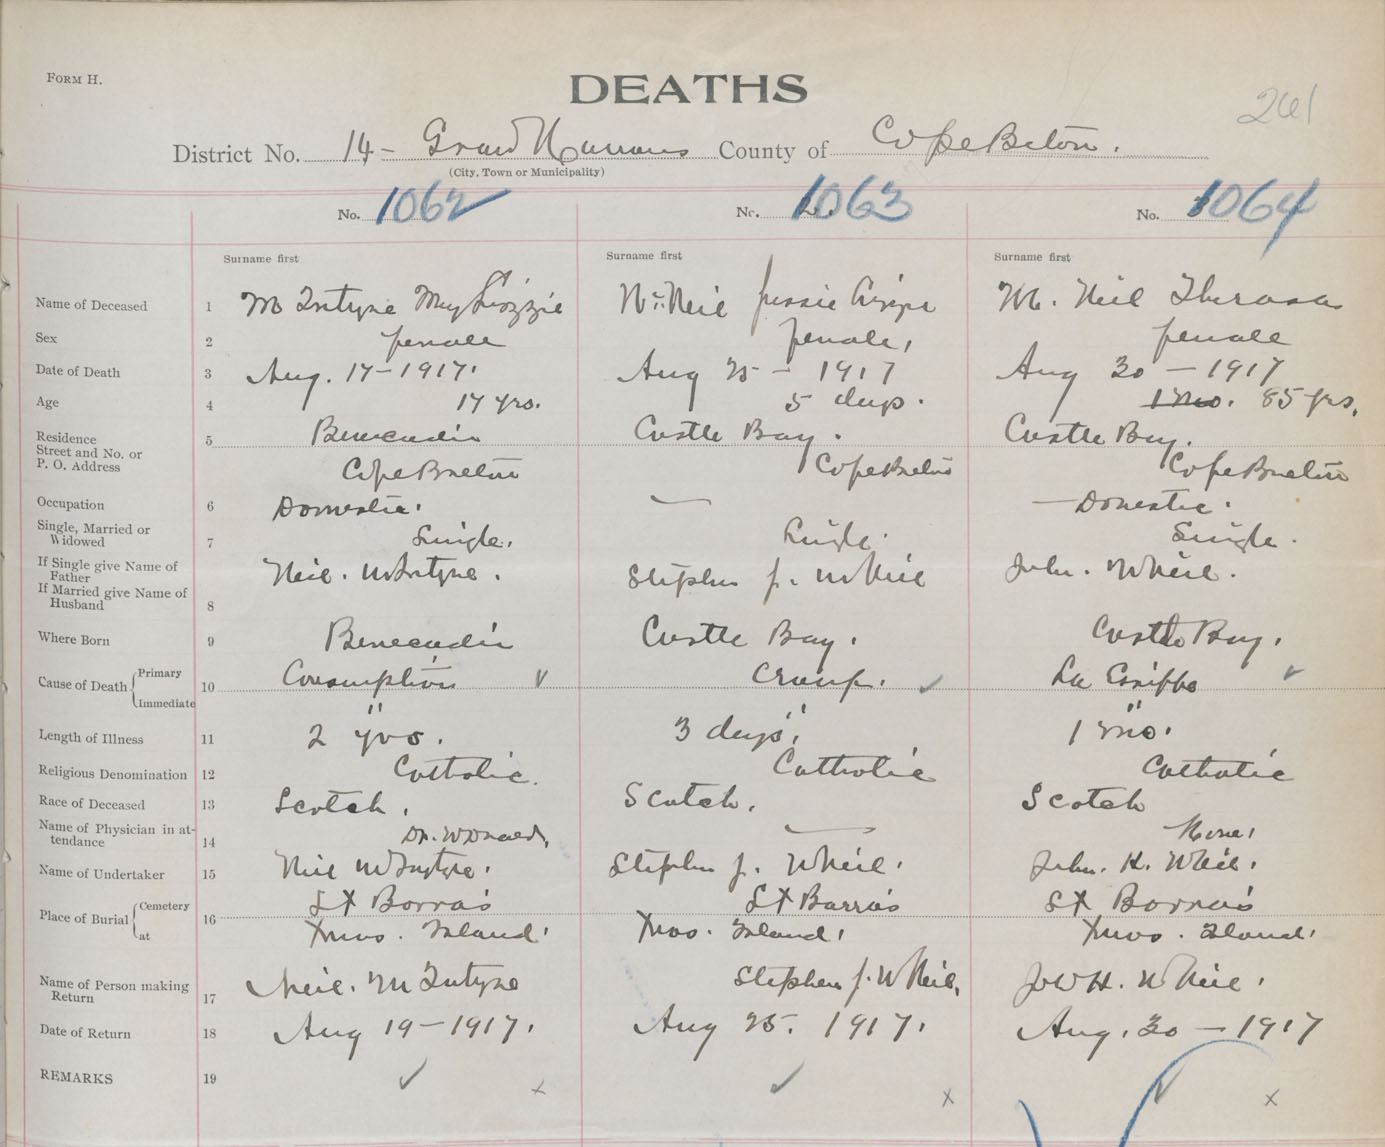 FORM H.
DEATHS
261
District No. 14 - Grand Narrows County of Cape Breton.
(City, Town or Municipality)
No. 1062 No. 1063 No. 1064
Surname first Surname first Surname first
Name of Deceased 1 McIntyre May Lizzie McNeil Jessie Mc. Neil Theresa
Sex 2 female female, female
Date of Death 3 Aug. 17-1917. Aug 25 - 1917 Aug 30 - 1917
Age 4 17 yrs. 5 days. 1 mo. 85 yrs.
Residence 5 Benecadie Castle Bay. Castle Bay.
Street and No. or
P. O. Address Cape Breton Cape Breton Cape Breton
Occupation 6 Domestic. — — Domestic.
Single, Married or
Widowed 7 Single. Single. Single.
If Single give Name of
Father Neil. McIntyre. Stephen J. McNeil John. McNeil.
If Married give Name of
Husband 8
Where Born 9 Benecadie Castle Bay. Castle Bay.
Cause of Death Primary 10 Consumption Croup. La Grippe
Immediate " " "
Length of Illness 11 2 yrs. 3 days. 1 mo.
Religious Denomination 12 Catholic. Catholic Catholic
Race of Deceased 13 Scotch. Scotch. Scotch
Name of Physician in at-
tendance 14 Dr. McDonald, — None.
Name of Undertaker 15 Neil McIntyre. Stephen J. McNeil. John. H. McNeil.
Place of Burial Cemetery 16 St Barra's St Barra's St Barra's
at Xmas. Island. Xmas. Island. Xmas. Island.
Name of Person making
Return 17 Neil. McIntyre Stephen J. McNeil, H. McNeil.
Date of Return 18 Aug 19-1917. Aug 25. 1917. Aug. 30 - 1917
REMARKS 19 ✓ x ✓ x ✓ x